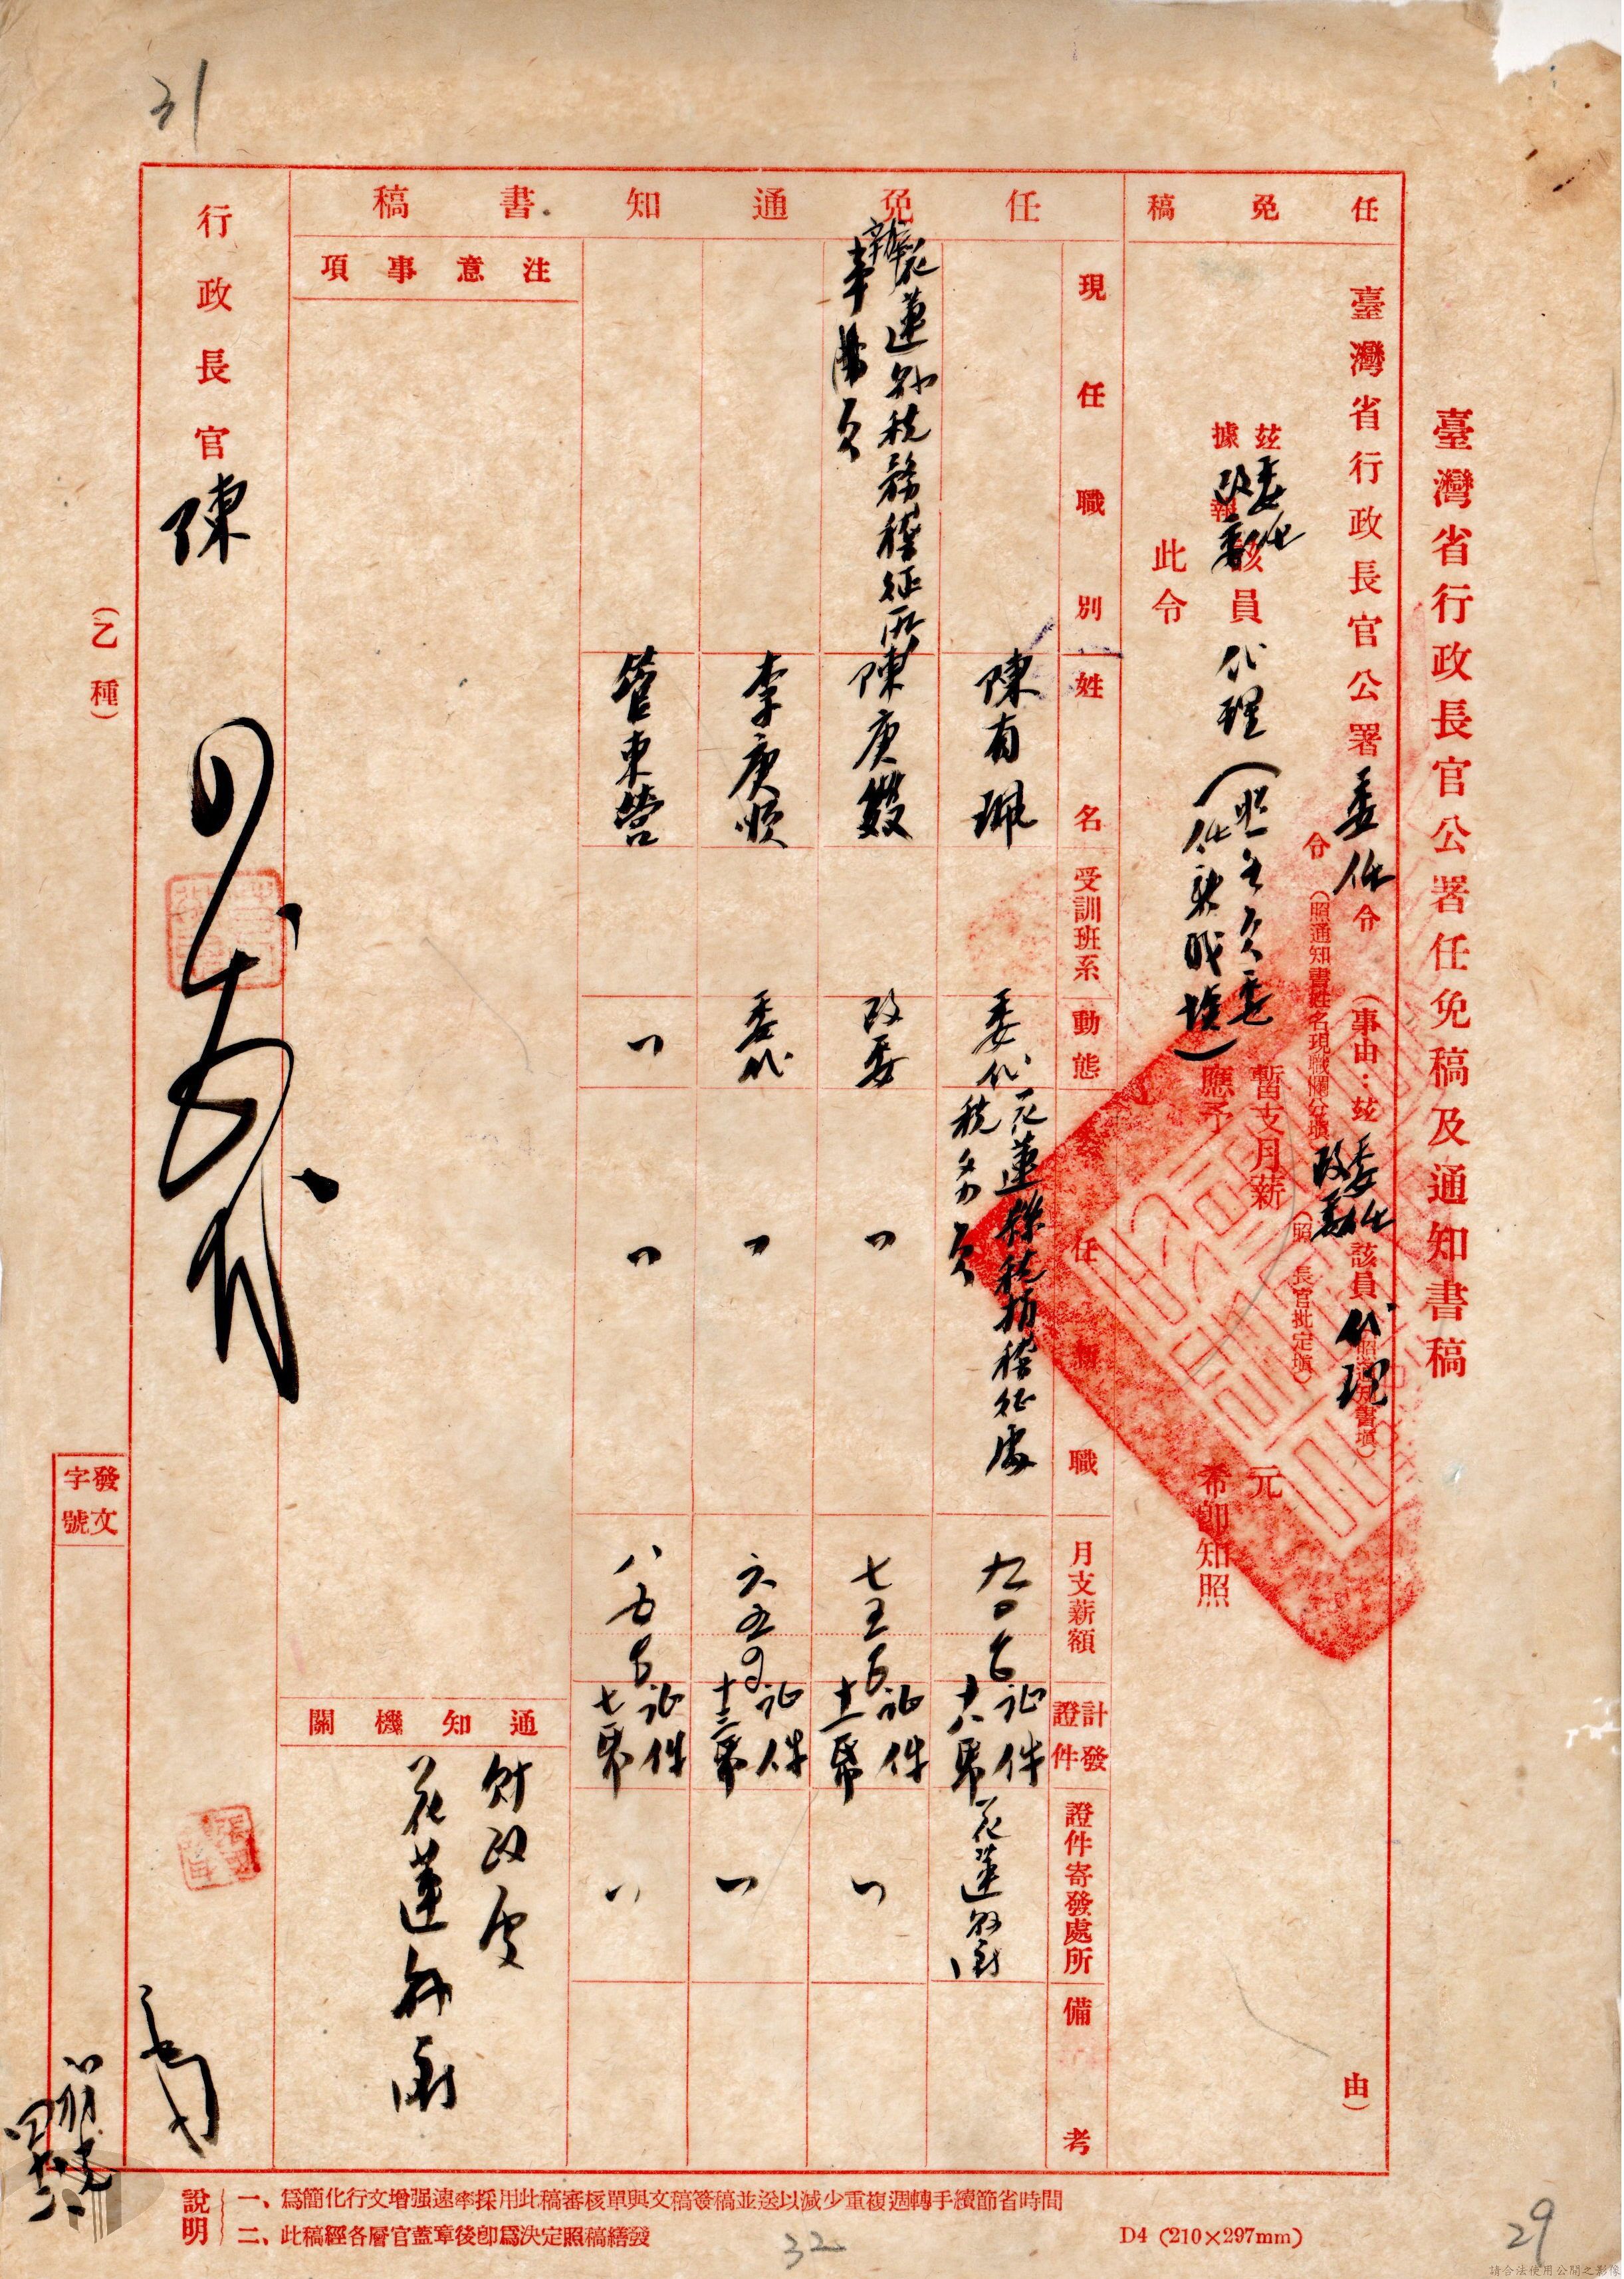 31
臺灣省行政長官公署任免稿及通知書稿
任免稿
臺灣省行政長官公署委任令
令
(事由:茲
委任
改
該員代理
(照通知書填)
由)
(照通知書姓名現職欄分填)
(照 長官批定填)
茲
據
委任
改
報
該員代理(照主欠委
任
填)
暫支月薪
元
應予
希卽知照
此令
任免通知書稿
現任職別
姓名
受訓班系
動態
新任職
月支薪額
計發證件
證件寄發處所
備考
陳有珮
委代
花蓮縣稅捐稽征處
稅務員
九〇
证件
十八號
花蓮縣府
花蓮縣稅務稽征所
辦事員
陳庚
改委
〃
七五
证件
十二號
〃
李庚順
委代
〃
六五
证件
十三號
〃
管東營
〃
〃
八五
证件
七號
〃
注意事項
通知機關
財政處
花蓮縣府
行政長官陳
(乙種)
發文字號
說明
一、爲簡化行文增强速率採用此稿審核單與文稿簽稿並送以減少重複週轉手續節省時間
二、此稿經各層官蓋章後卽爲決定照稿繕發
D4 (210×297mm)
32
29
請合法使用公開之影像